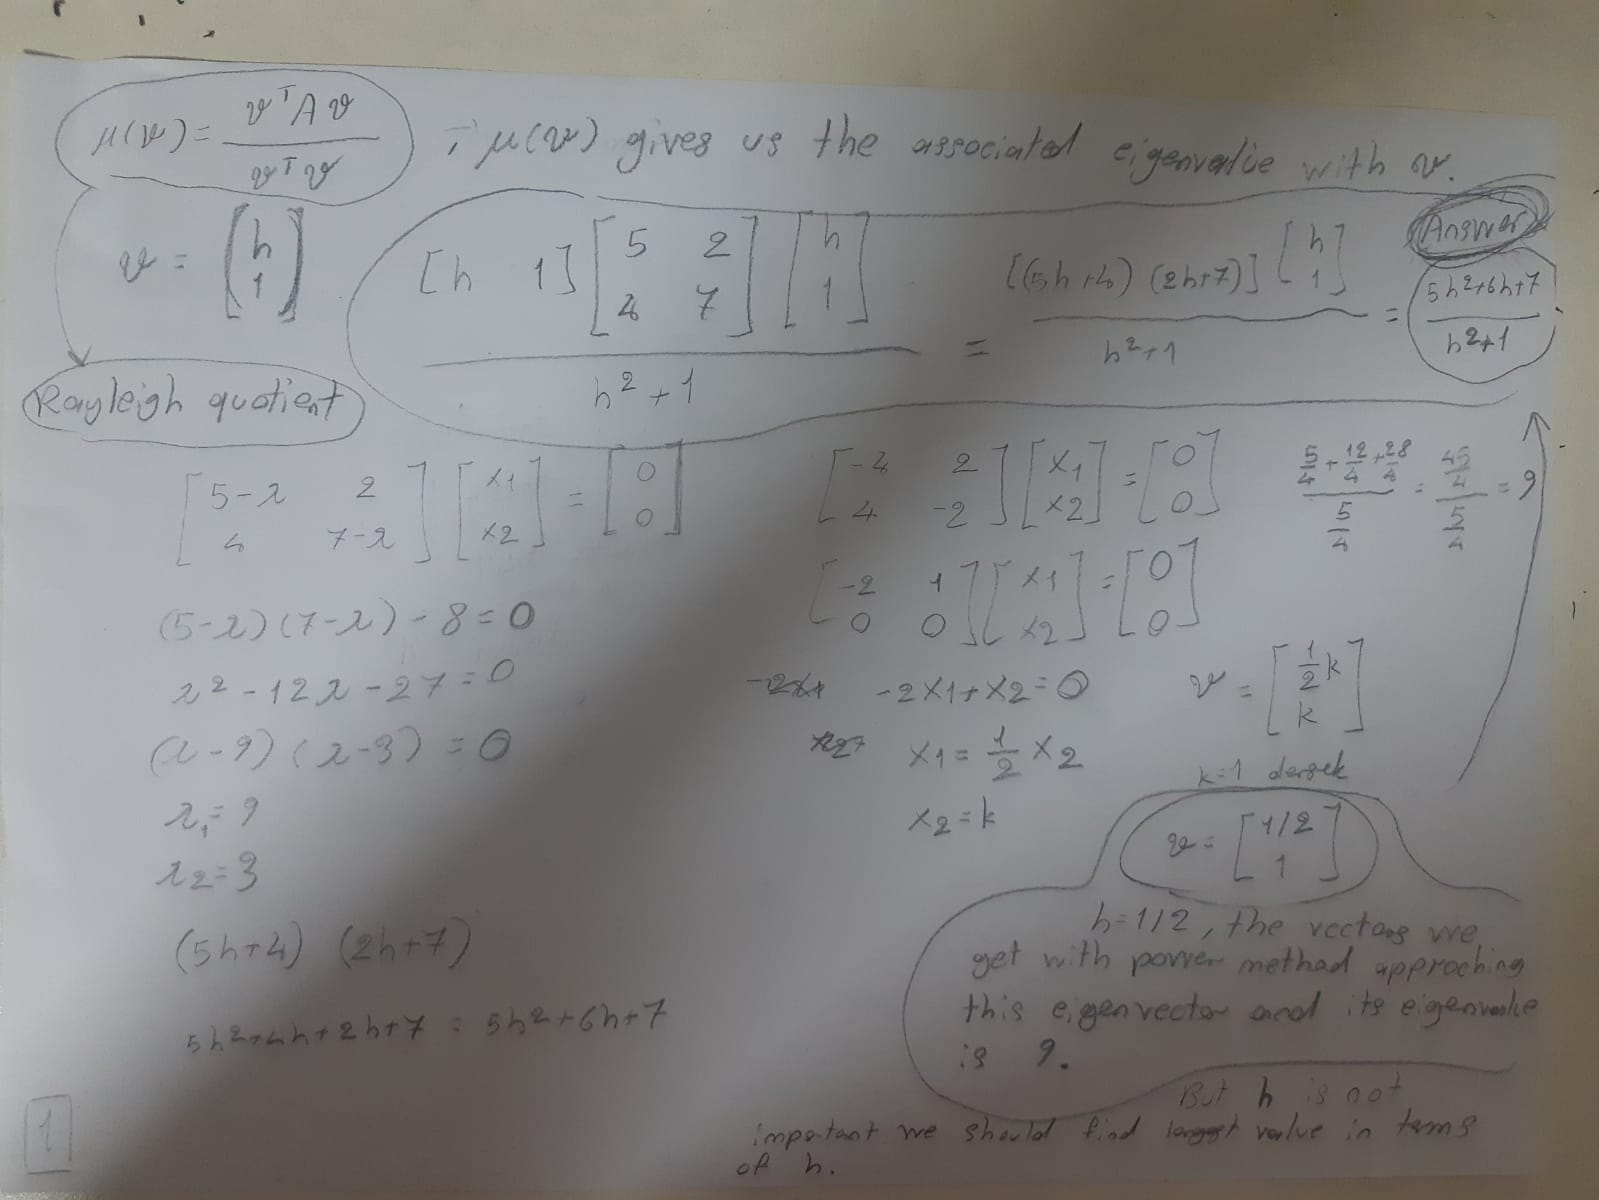 μ(v) = vᵀAv / vᵀv ; μ(v) gives us the associated eigenvalue with v.
v = [h; 1]
[h 1] [5 2; 4 7] [h; 1] / h²+1 = [(5h+4) (2h+7)] [h; 1] / h²+1 = 5h²+6h+7 / h²+1
Answer
Rayleigh quotient
[5-λ 2; 4 7-λ] [x1; x2] = [0; 0]
(5-λ)(7-λ)-8=0
λ²-12λ-27=0
(λ-9)(λ-3)=0
λ1=9
λ2=3
(5h+4) (2h+7)
5h²+4h+2h+7 = 5h²+6h+7
[-4 2; 4 -2] [x1; x2] = [0; 0]
[-2 1; 0 0] [x1; x2] = [0; 0]
-2x1+x2=0
x1 = 1/2 x2
x2=k
5/4 + 12/4 + 28/4 / 5/4 = 45/4 / 5/4 = 9
v = [1/2 k; k]
k=1 dersek
v = [1/2; 1]
h=1/2, the vectors we
get with power method approching
this eigenvector and its eigenvalue
is 9.
But h is not
important we should find largest value in terms
of h.
1